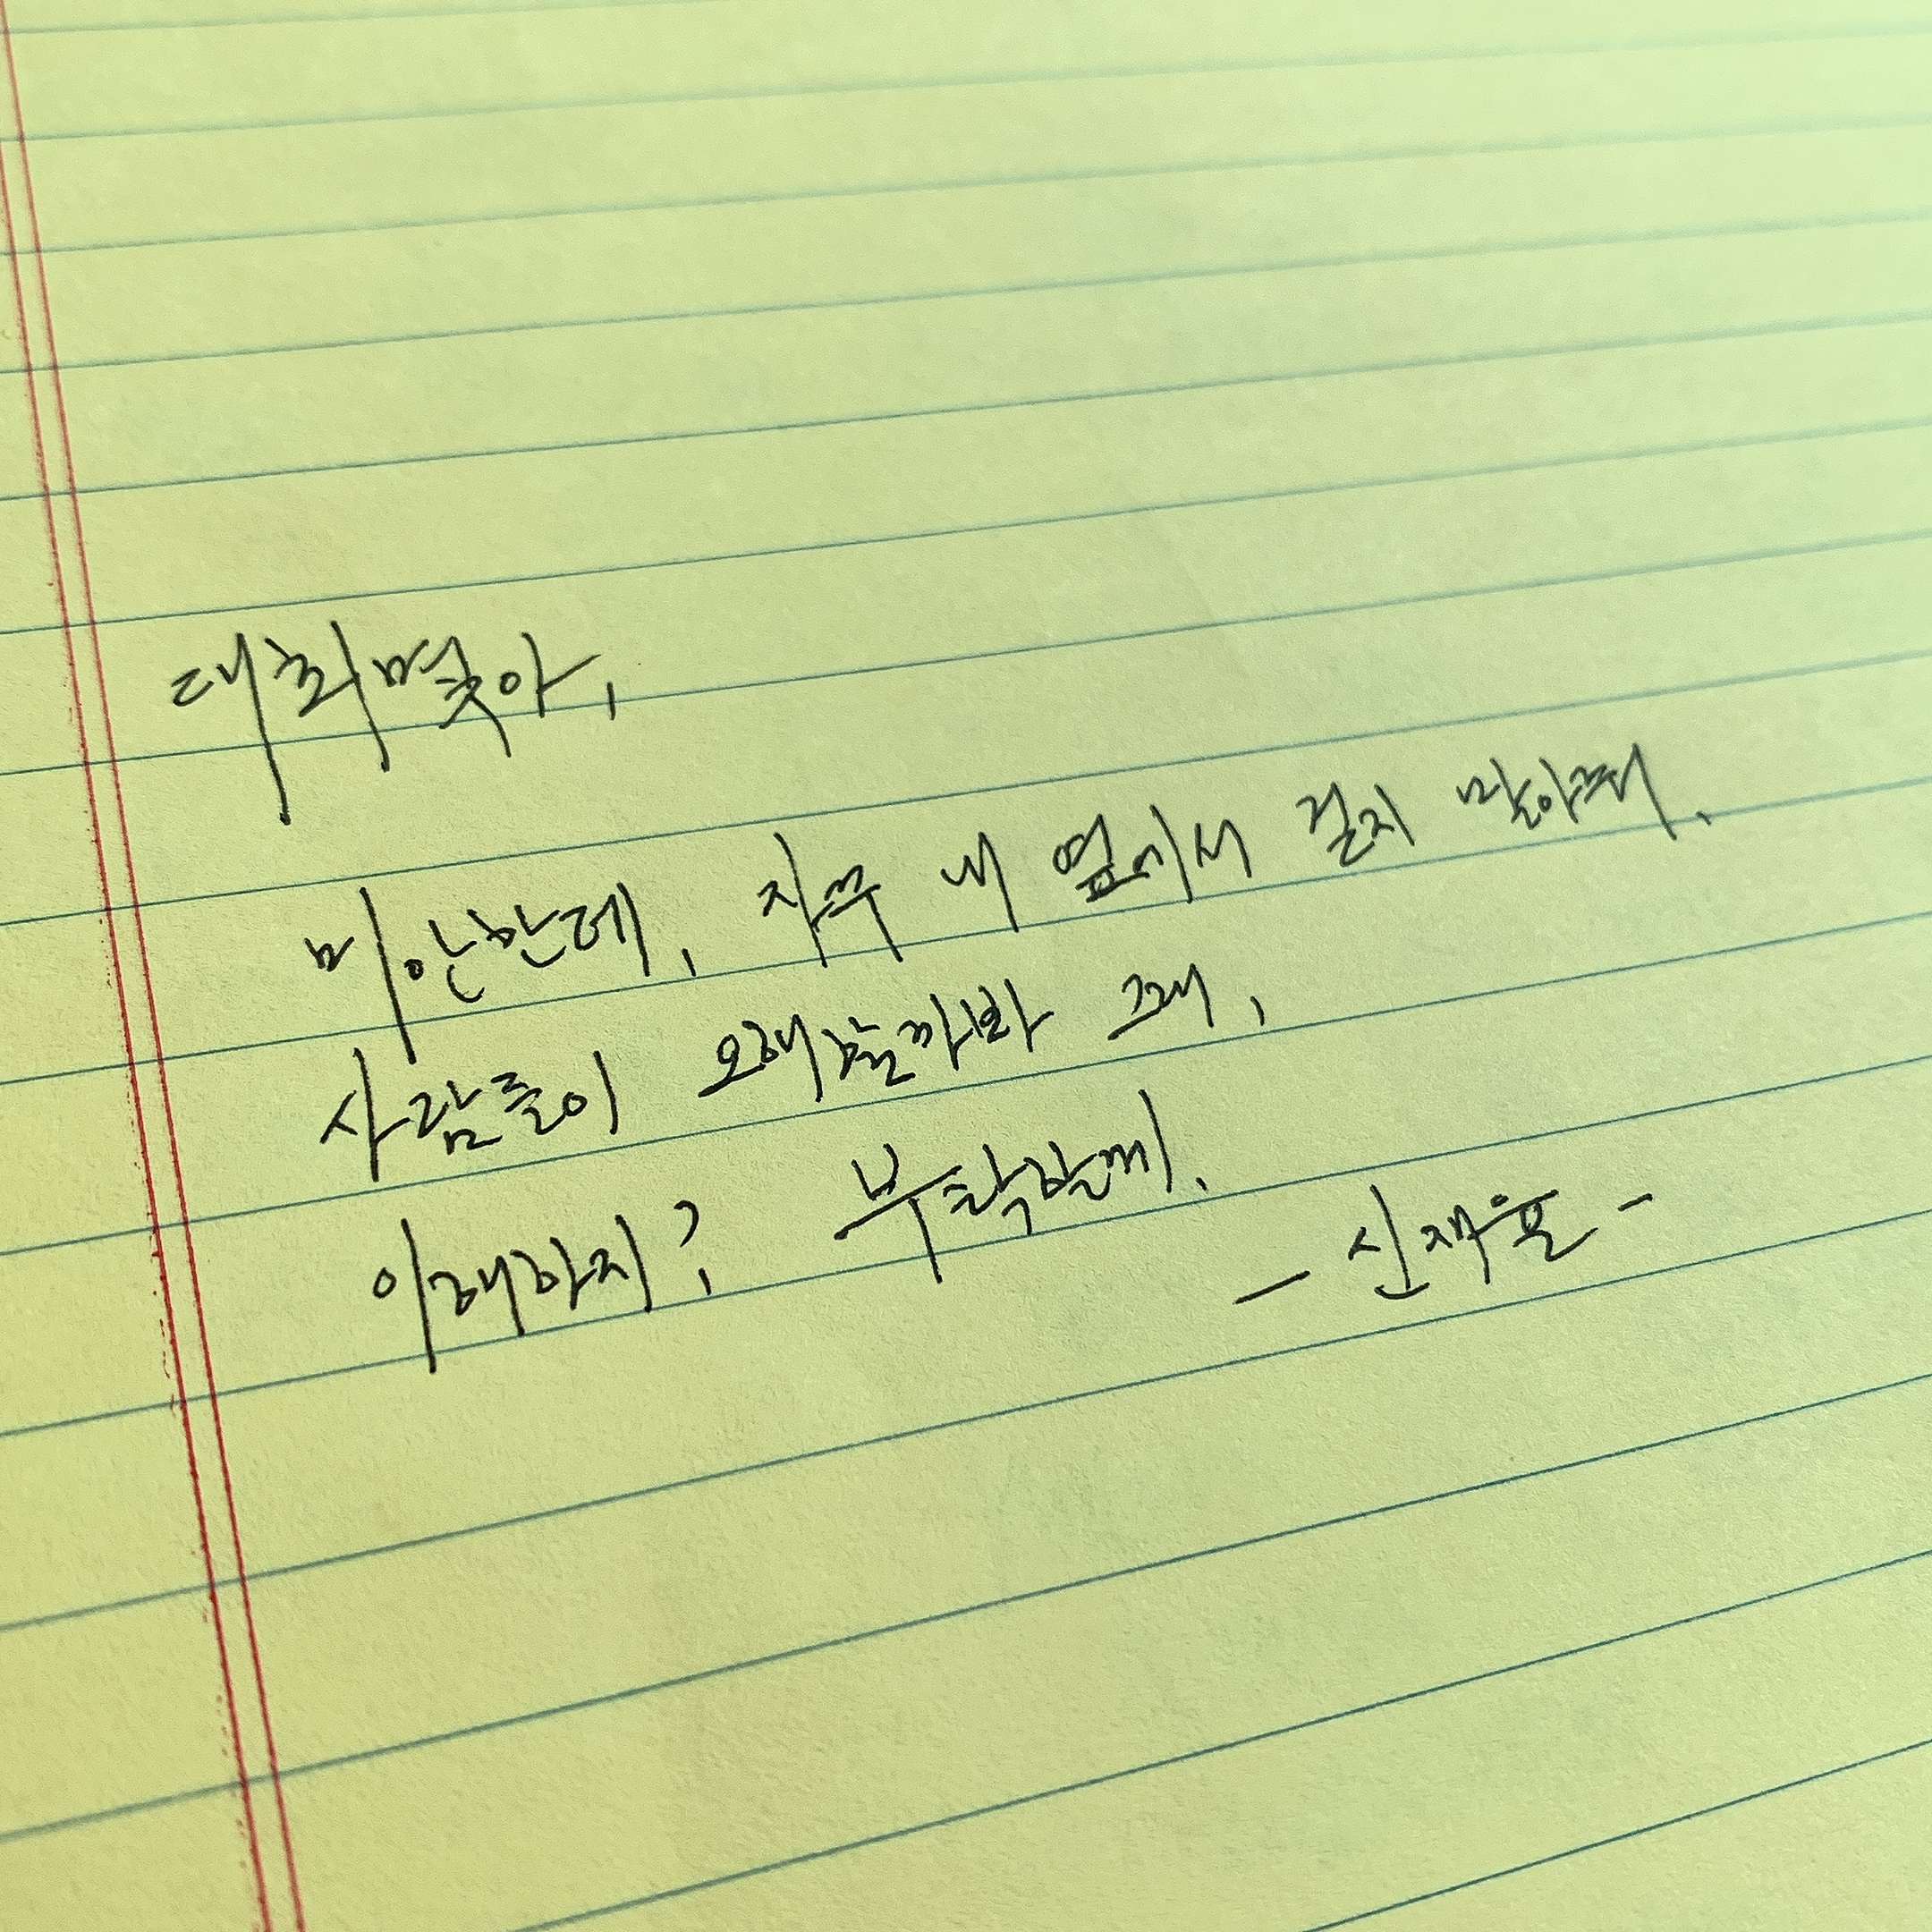 대희멷아,
미안한데, 자꾸 내 옆에서 걷지 말아줘.
사람들이 오해할까봐 그래,
이해하지? 부탁할게.
- 신재윤 -